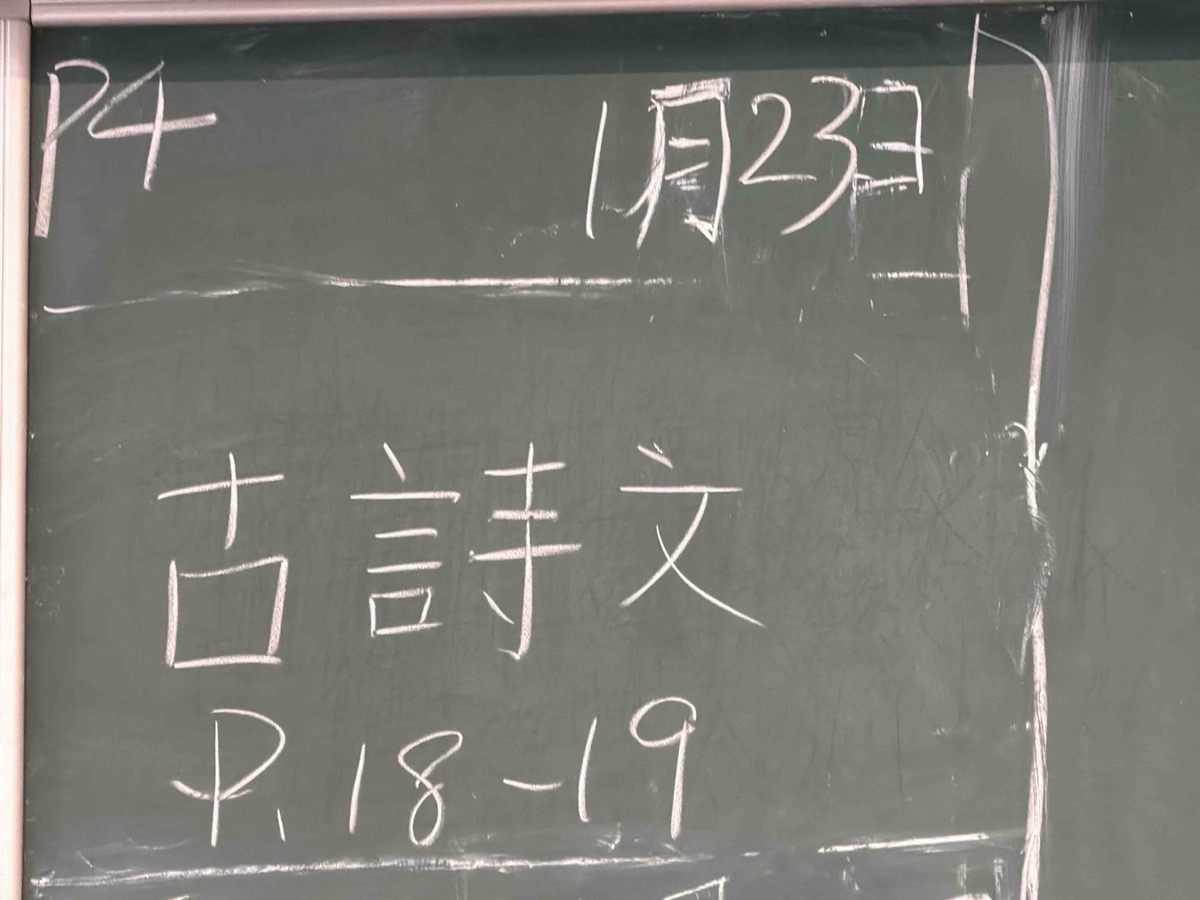 P4 1月23日
古詩文
P.18-19